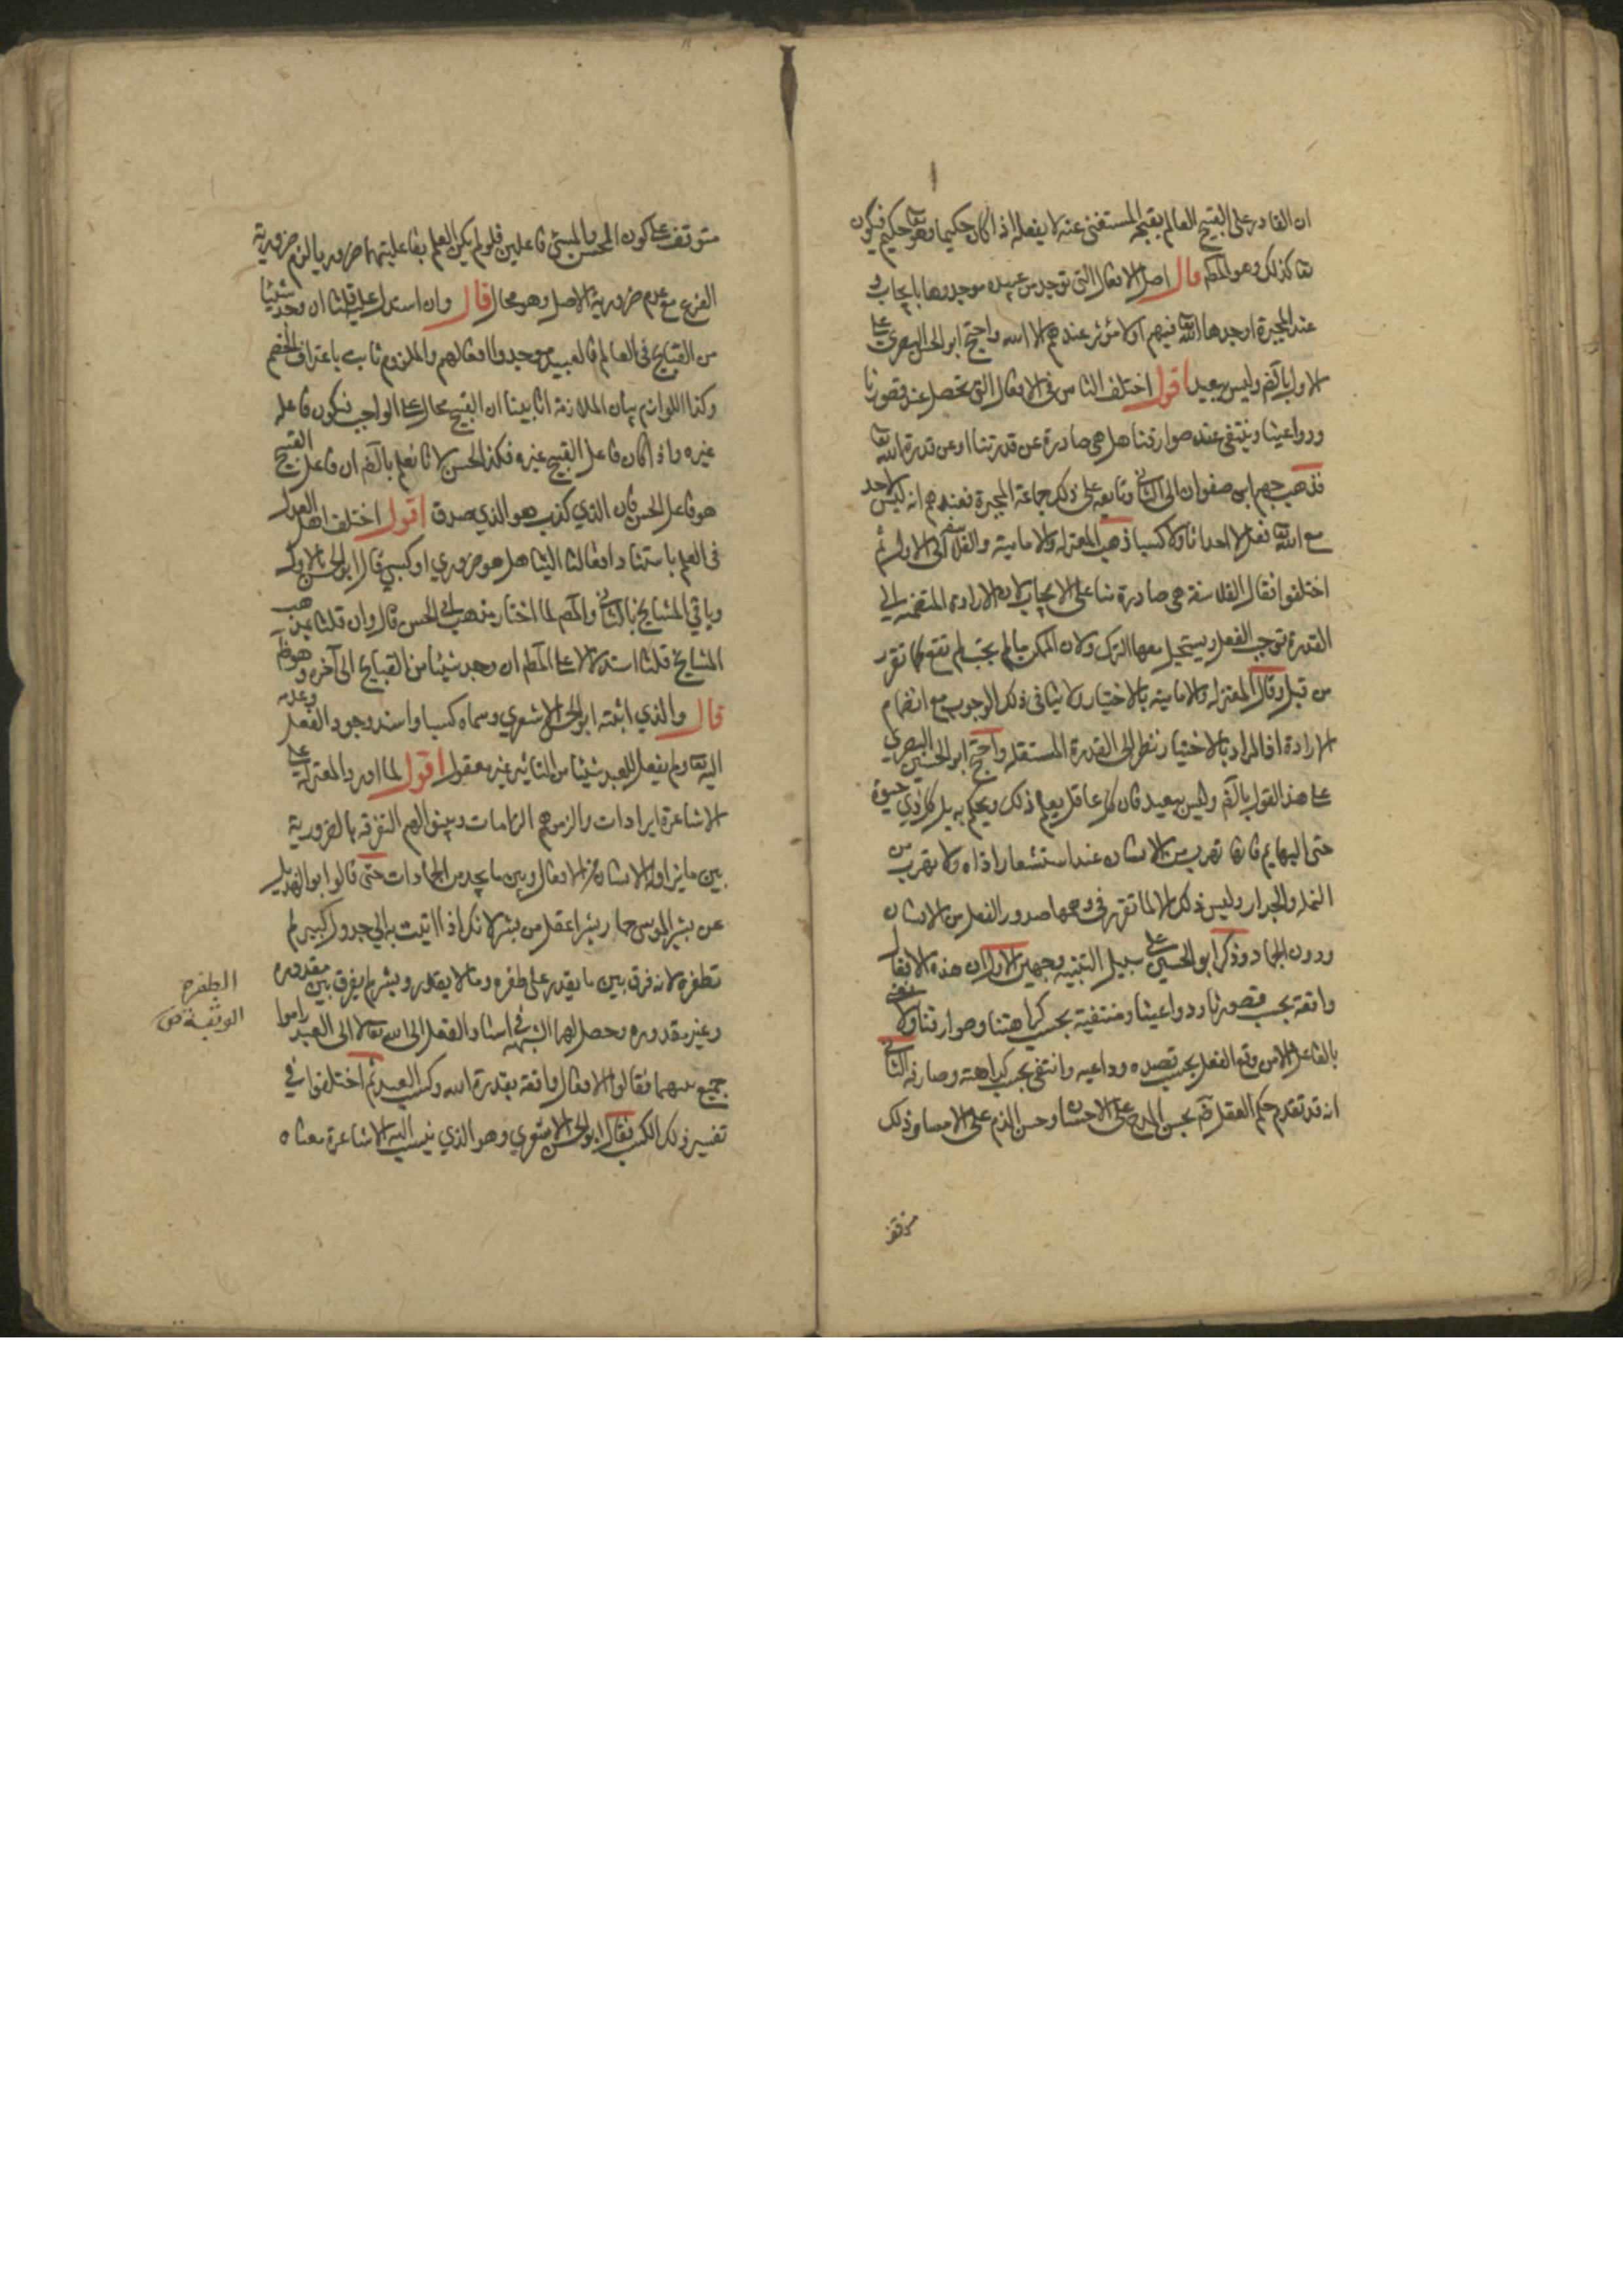 ان القادر على القبيح العالم بقبحه المستغنى عنه لا يفعله اذا كان حكيما وهو تعا حكيم فيكون
تعا كذلك وهو المط قال اصل الافعال التى توجد من عبيده موجدوها بايجاب و
عند المجبرة اوجدها الله تعا فيهم اذ لا مؤثر عندهم الا الله واحتج ابو الحسين البصرى على
الاول بالضم وليس ببعيد اقول اختلف الناس فى الافعال التى تحصل عند قصورنا
ودواعينا وينتفى عند صوارفنا هل هى صادرة عن قدرتنا او عن قدرة الله تعا
فذهب جهم ابن صفوان الى الثانى وتابعه على ذلك جماعة المجبرة فعندهم انه ليس لاحد
مع الله تعا فعل لا احداثا ولا كسبا ذهب المعتزلة والامامية والفلاسفة الى الاول ثم
اختلفوا فقال الفلاسفة هى صادرة منا على الايجاب لان الارادة المنضمة الى
القدرة توجب الفعل ويستحيل معها الترك ولان الممكن ما لم يجب لم تقع كما تقرر
من قبل وقال المعتزلة والامامية بالاختيار ولا ينافى ذلك الوجوب مع انضمام
الارادة اذ المراد بالاختيار نظر الى القدرة المستقلة واحتج ابو الحسين البصرى
على هذا القول بالضم وليس ببعيد فان كل عاقل يعلم ذلك ويحكم به بل كل ذي حيوة
حتى البهايم فانها تهرب من الانسان عند استشعار اذاه ولا تهرب من
النخلة والجدار وليس ذلك الا لما تقرر فى وهمها صدور الفعل من الانسان
ودون الجماد وذكر ابو الحسين على سبيل التنبيه وجهين الاول ان هذه الافعال
واقعة بحسب قصورنا ودواعينا ومنتفية بحسب كراهتنا وصوارفنا ولا نعنى
بالفاعل الا من وقع الفعل بحسب قصده وداعيه وانتفى بحسب كراهته وصارفه الثانى
انه قد تقدم حكم العقل بحسن المدح على الاحسان وحسن الذم على الاساءة وذلك
متوقف
متوقف على كون المحسن والمسئ فاعلين فلو لم يكن العلم بفاعليتهما ضروريا لزم ضرورية
الفرع مع عدم ضرورية الاصل وهو محال قال وان استدل عليه قلنا ان وجد شيئا
من القبايح فى العالم فالعبيد موجدوا افعالهم والملزوم ثابت باعتراف الخصم
وكذا اللوازم بيان الملازمة انا بينا ان القبيح محال على الواجب فيكون فاعله
غيره واذا كان فاعل القبيح غيره فكذا الحسن لانا نعلم بالضم ان فاعل القبيح
هو فاعل الحسن فان الذي كذب هو الذي صدق اقول اختلف اهل العدل
فى العلم باستناد افعالنا الينا هل هو ضروري او كسبي فقال ابو الحسين بالاول
وباقي المشايخ بالثانى والمصم لما اختار مذهب ابى الحسن قال وان قلنا بمذهب
المشايخ قلنا استدلالا على المط ان وجد شيئا من القبايح الى آخره وهو ظ
قال والذي اثبته ابو الحسن الاشعري وسماه كسبا واسند وجود الفعل وعدمه
اليه تعا ولم يفعل للعبد شيئا من التاثير غير معقول اقول لما اورد المعتزلة على
الاشاعرة ايرادات والزموهم الزامات وبينوا لهم التفرقة بالضرورية
بين ما يزاوله الانسان من الافعال وبين ما يجده من الجمادات حتى قالوا ابو الهذيل
عن بشر المريسى حمار بشر اعقل من بشر لانك اذا اتيت به الى جدول كبير لم
تطفره لانه فرق بين ما يقدر على طفره وما لا يقدر وبشر لم يفرق بين مقدوره
وغير مقدوره وحصل لهم الشبهة فى اسناد الفعل الى الله تعالى لا الى العبد راموا
جمع بينهما فقالوا الافعال واقعة بقدرة الله وكسب العبد ثم اختلفوا فى
تفسير ذلك الكسب فقال ابو الحسن الاشعري وهو الذي ينسب اليه الاشاعرة معناه
الطفرة
الوثبة ص